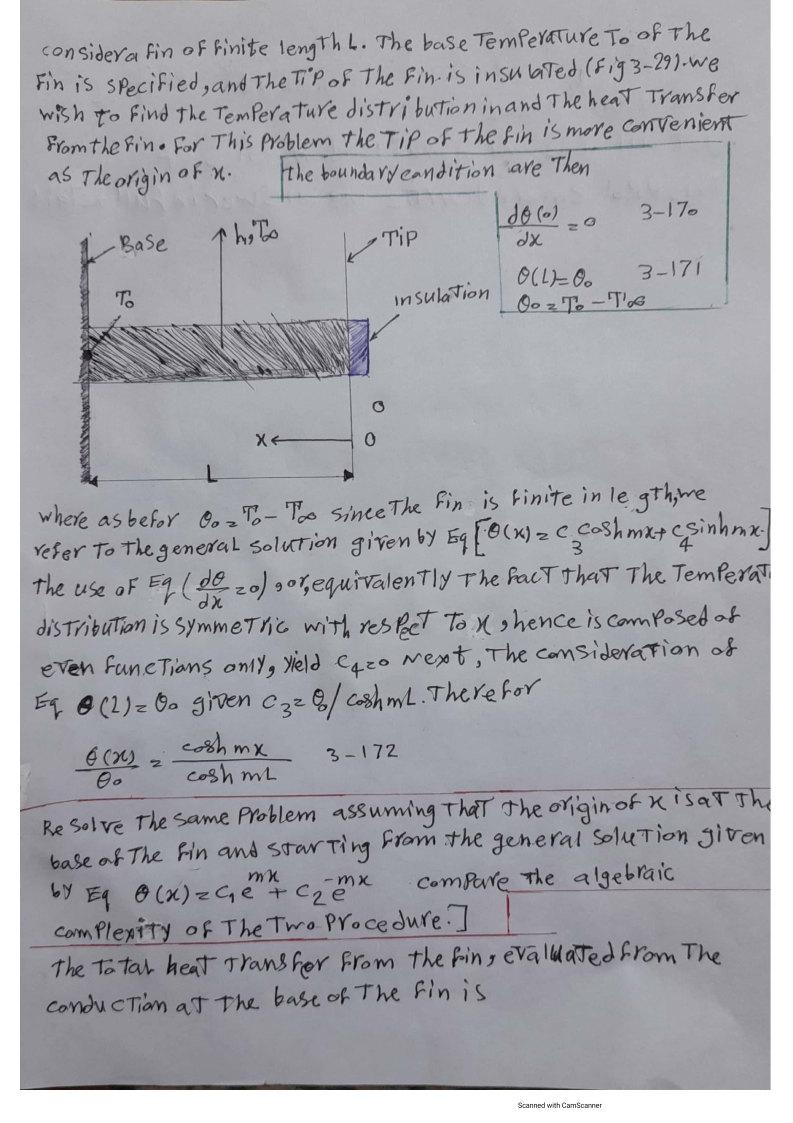 considera fin of finite length L. The base Temperature To of The
Fin is specified, and The Tip of The Fin is insulated (fig 3-29). we
wish to find the Temperature distribution in and The heat Transfer
from the Fin. For This Problem the Tip of the fin is more convenient
as The origin of x. the boundary condition are Then
dθ(0)/dx = 0 3-170
θ(L)=θ₀ 3-171
θ₀ = T₀ - T∞
Base
h, T∞
Tip
T₀
insulation
0
x
0
L
where as befor θ₀ = T₀ - T∞ since The Fin is finite in le gth, we
refer To the general solution given by Eq [θ(x) = C₃ coshmx + C₄ sinhmx.]
The use of Eq (dθ/dx = 0), or, equivalently The fact That The Temperat
distribution is symmetric with respect To x, hence is composed of
even functions only, yield C₄=0 Next, The consideration of
Eq θ(L) = θ₀ given C₃ = θ₀/coshmL. Therefor
θ(x)/θ₀ = cosh mx/cosh mL 3-172
Re solve The same Problem assuming That the origin of x is at The
base of The fin and starting from the general solution given
by Eq θ(x) = C₁e^mx + C₂e^-mx compare The algebraic
complexity of The Two Procedure.]
The Total heat Transfer from the fin, evaluated from The
conduction at the base of The Fin is
Scanned with CamScanner